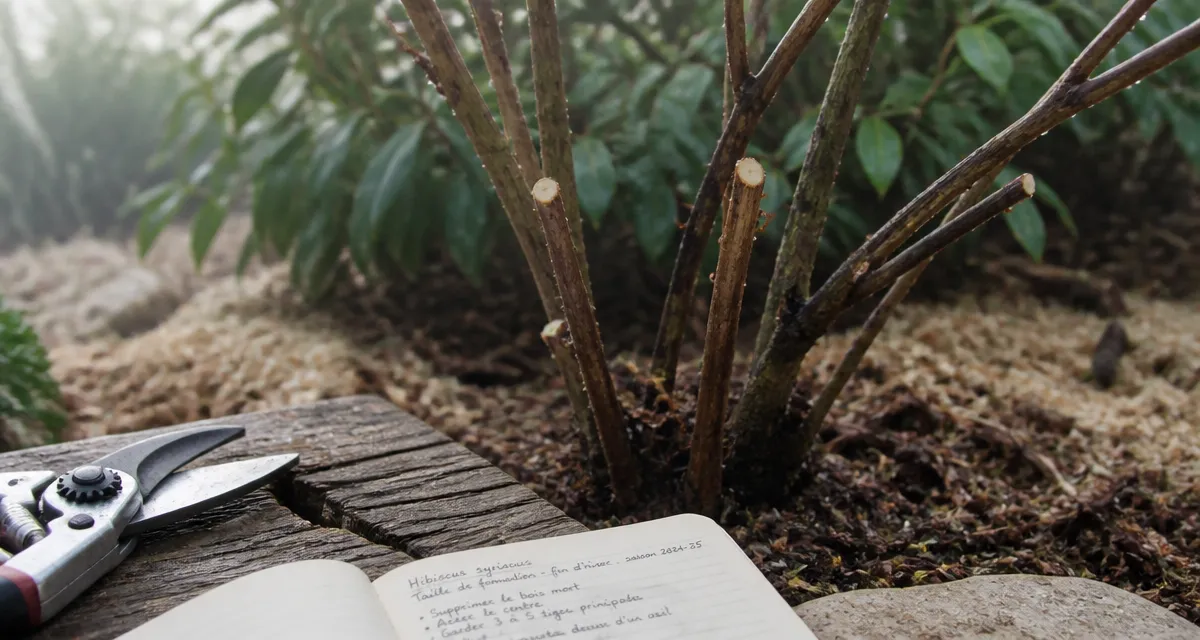 Hibiscus syriacus
Taille de formation - fin d'hiver. saison 2024-25
• Supprimer le bois mort
• Aérer le centre
• Garder 3 à 5 tiges principales
dessus d'un œil